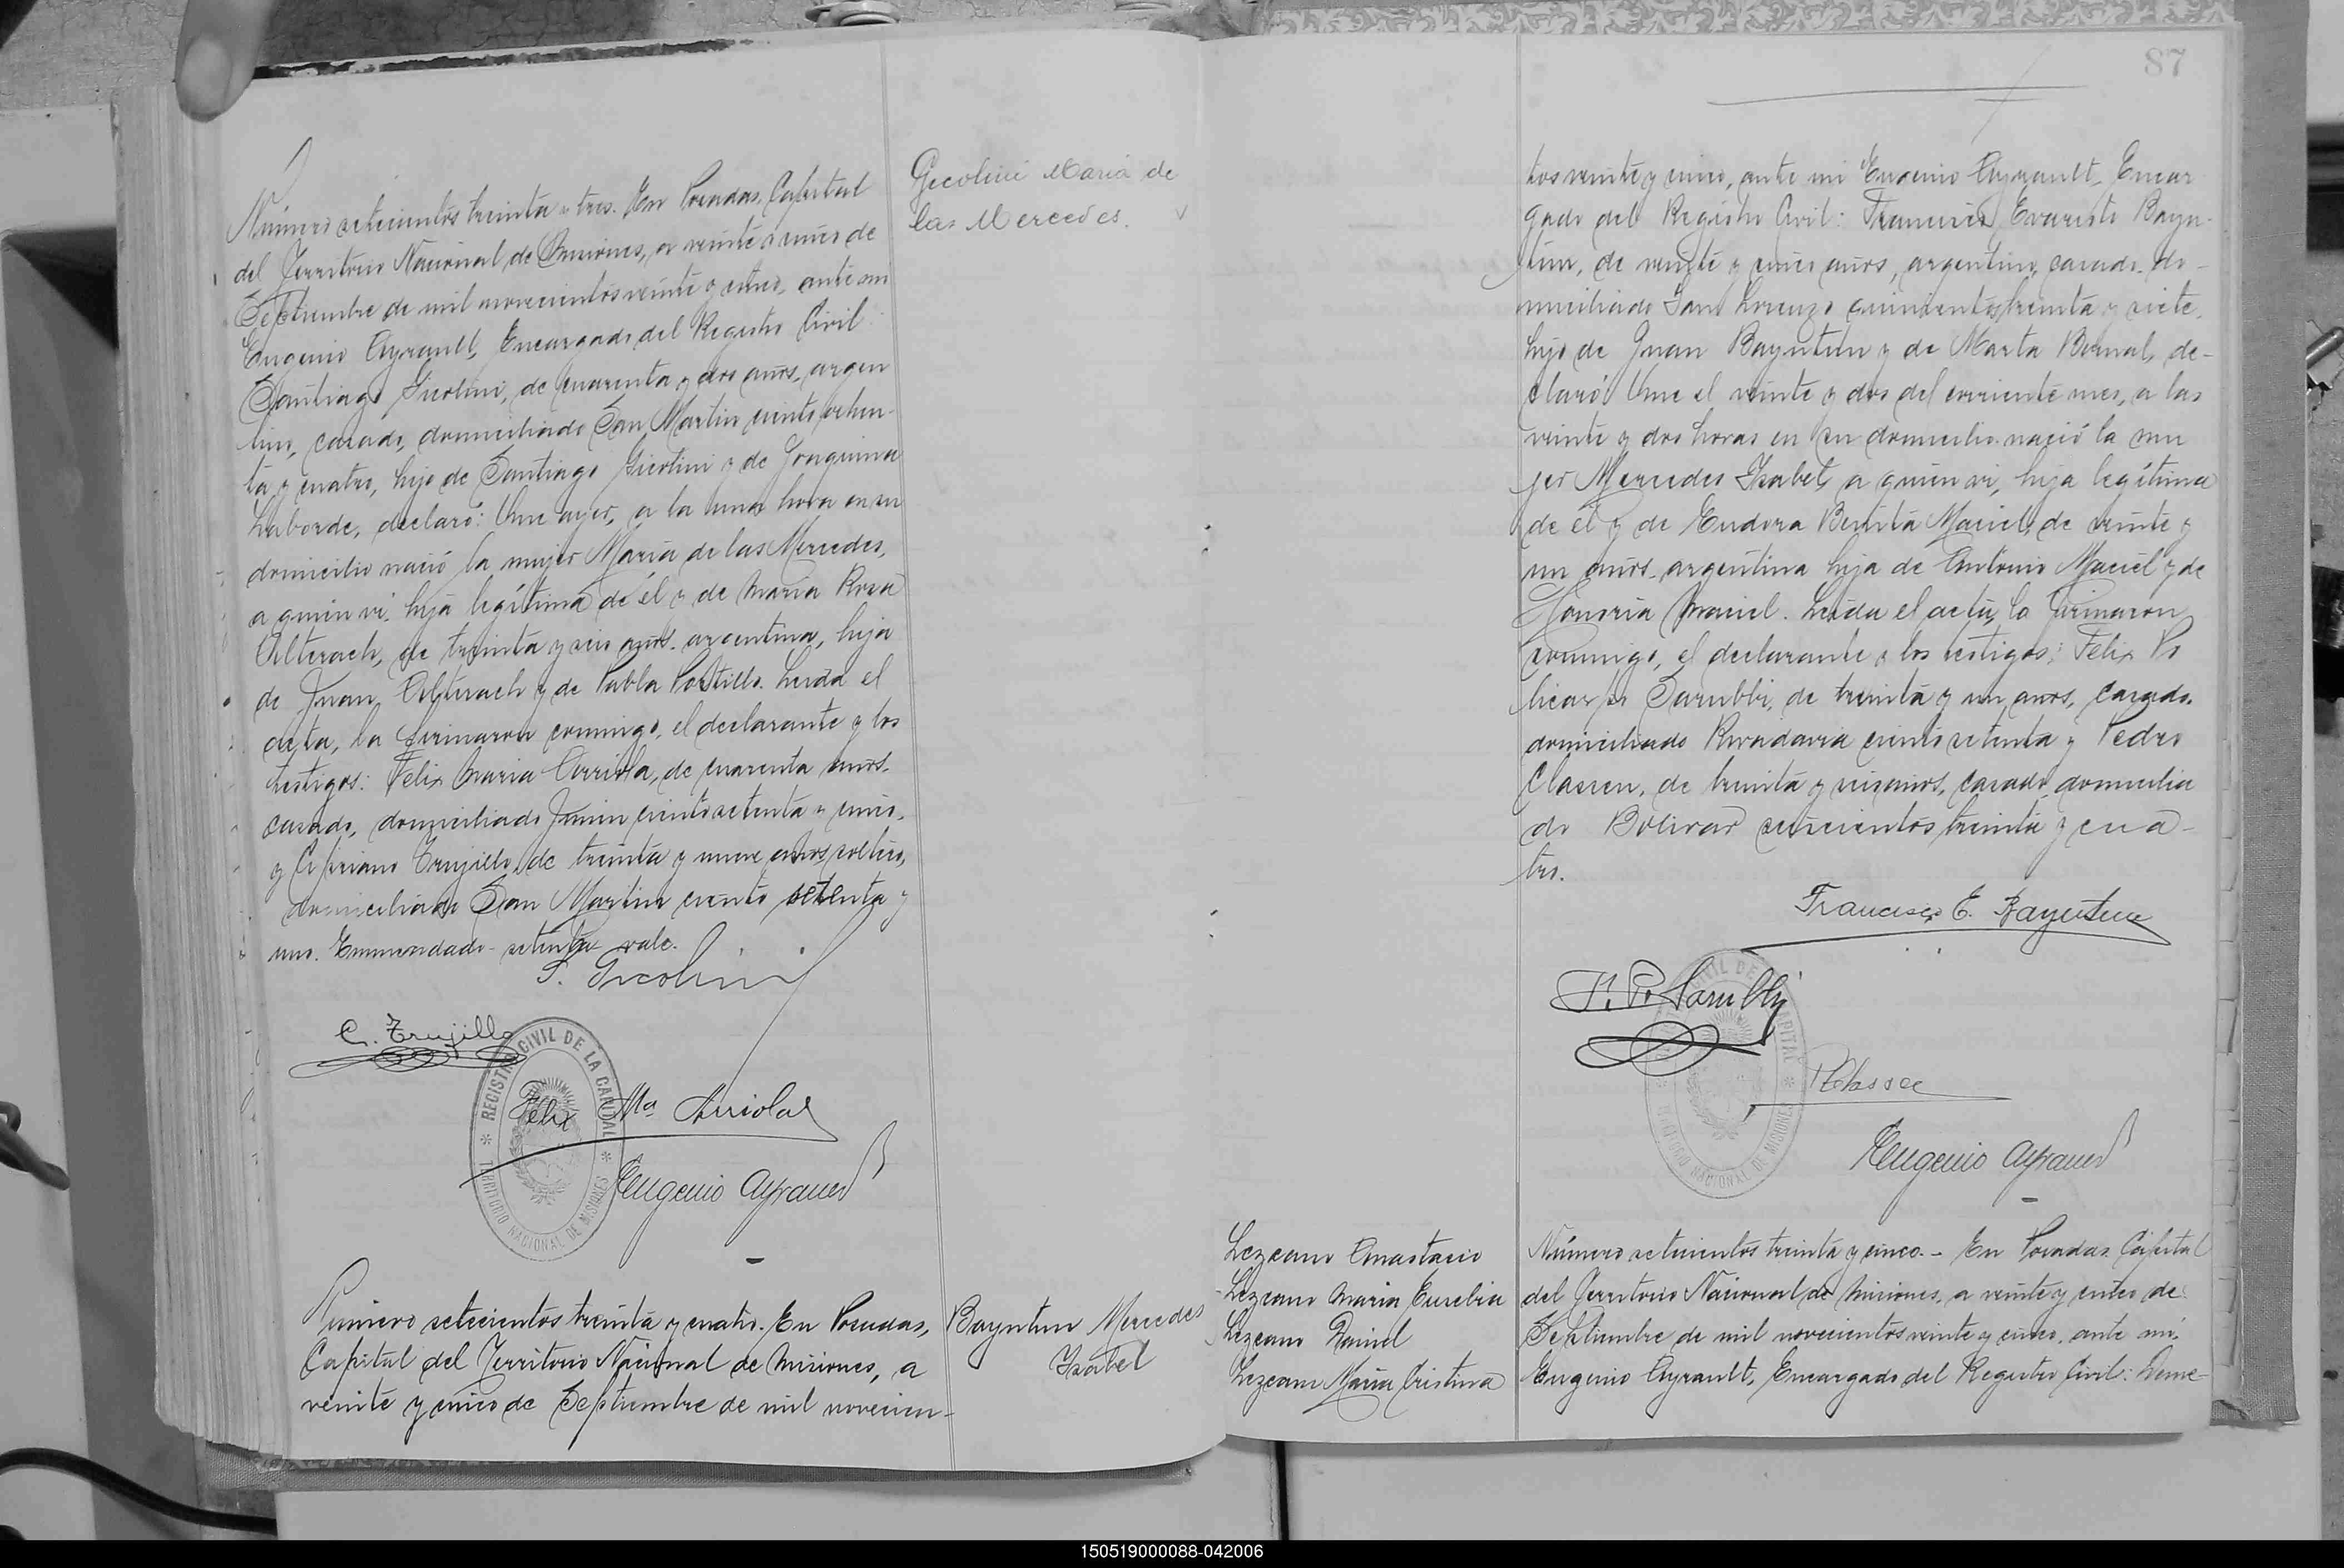 Número setecientos treinta y tres. En Posadas, Capital
del Territorio Nacional de Misiones, a veinte y cinco de
Septiembre de mil novecientos veinte y cinco, ante mi
Eugenio Ayrault, Encargado del Registro Civil:
Santiago Gicolini, de cuarenta y dos años, argen
tino, casado, domiciliado San Martin ciento ochen-
ta y cuatro, hijo de Santiago Gicolini y de Joaquina
Laborde, declaró: Que ayer, a la una hora en su
domicilio nació la mujer María de las Mercedes,
a quien vi, hija legítima de él y de María Rosa
Alterach, de treinta y seis años, argentina, hija
de Juan Alterach y de Pabla Portillo. Leida el
acta, la firmaron conmigo, el declarante y los
testigos: Felix Maria Arriola, de cuarenta años,
casado, domiciliado Junin ciento setenta y cinco,
y Cipriano Trujillo, de treinta y nueve años, soltero,
domiciliado San Martin ciento setenta y
uno. Enmendado - setenta - vale.
Gicolini María de
las Mercedes.
S. Gicolini
C. Trujillo
Felix Ma Arriola
REGISTRO CIVIL DE LA CAPITAL
TERRITORIO NACIONAL DE MISIONES
Eugenio Ayrault
Número setecientos treinta y cuatro. En Posadas,
Capital del Territorio Nacional de Misiones, a
veinte y cinco de Septiembre de mil novecien-
Bayntun Mercedes
Isabel
87
tos veinte y cinco, ante mi Eugenio Ayrault, Encar
gado del Registro Civil: Francisco Evaristo Bayn-
tun, de veinte y cinco años, argentino, casado, do-
miciliado San Lorenzo quinientos treinta y siete,
hijo de Juan Bayntun y de Marta Bernal, de-
claró: Que el veinte y dos del corriente mes, a las
veinte y dos horas en su domicilio nació la mu
jer Mercedes Isabel, a quien vi, hija legítima
de él y de Eudora Benita Maciel, de veinte y
un años, argentina hija de Antonio Maciel y de
Honoria Maciel. Leida el acta, la firmaron
conmigo, el declarante y los testigos: Felix Po
licarpo Sarubbi, de treinta y un años, casado,
domiciliado Rivadavia ciento setenta y Pedro
Classen, de treinta y seis años, casado, domicilia
do Bolivar seiscientos treinta y cua-
tro.
Francisco E. Bayntun
F. P. Sarubbi
REGISTRO CIVIL DE LA CAPITAL
TERRITORIO NACIONAL DE MISIONES
Eugenio Ayrault
Lezcano Anastacio
Lezcano Maria Eusebia
Lezcano Daniel
Lezcano María Cristina
Número setecientos treinta y cinco.- En Posadas, Capital
del Territorio Nacional de Misiones, a veinte y cinco de
Septiembre de mil novecientos veinte y cinco, ante mi
Eugenio Ayrault, Encargado del Registro Civil: Deme-
150519000088-042006